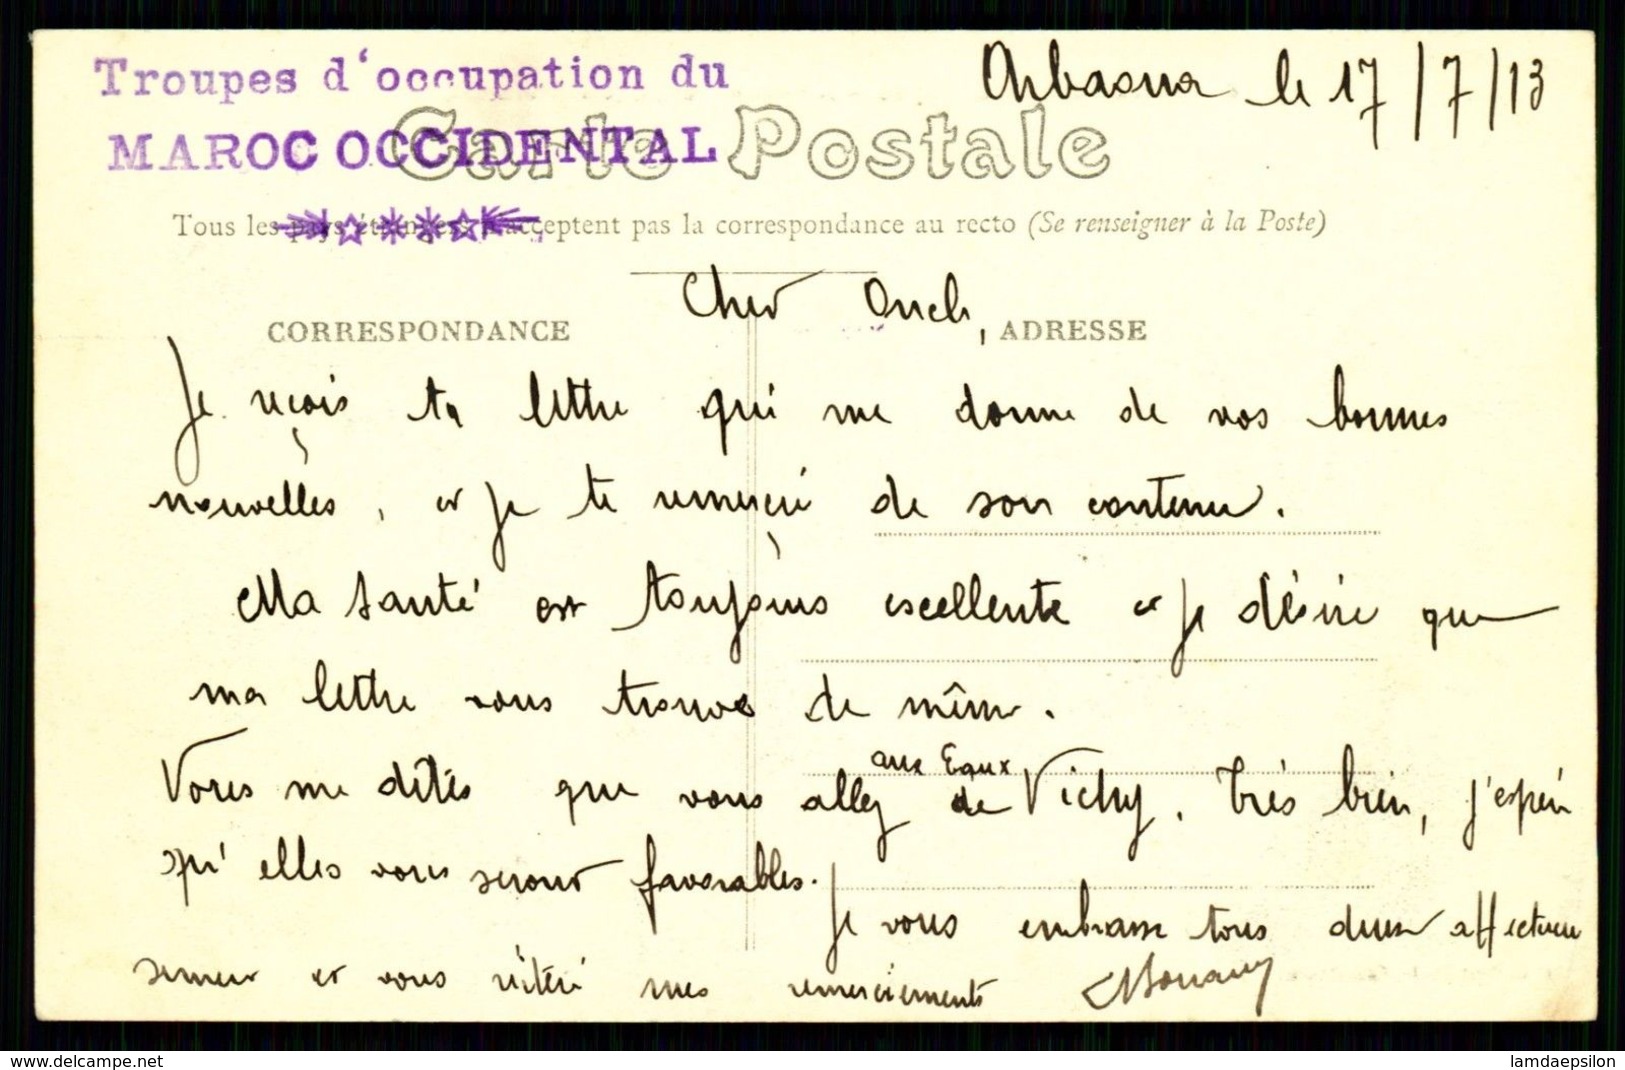 Troupes d'occupation du
MAROC OCCIDENTAL
Arbaoua le 17/7/13
Carte Postale
Tous les pays étrangers n'acceptent pas la correspondance au recto (Se renseigner à la Poste)
CORRESPONDANCE
ADRESSE
Cher Oncle,
Je reçois ta lettre qui me donne de vos bonnes
nouvelles, et je te remercie de son contenu.
Ma santé est toujours excellente et je désire que
ma lettre vous trouve de même.
Vous me dites que vous allez aux Eaux de Vichy. Très bien, j'espère
qu'elles vous seront favorables.
Je vous embrasse tous deux affectueu
sement et vous réitère mes remerciements
delcampe.net
lamdaepsilon